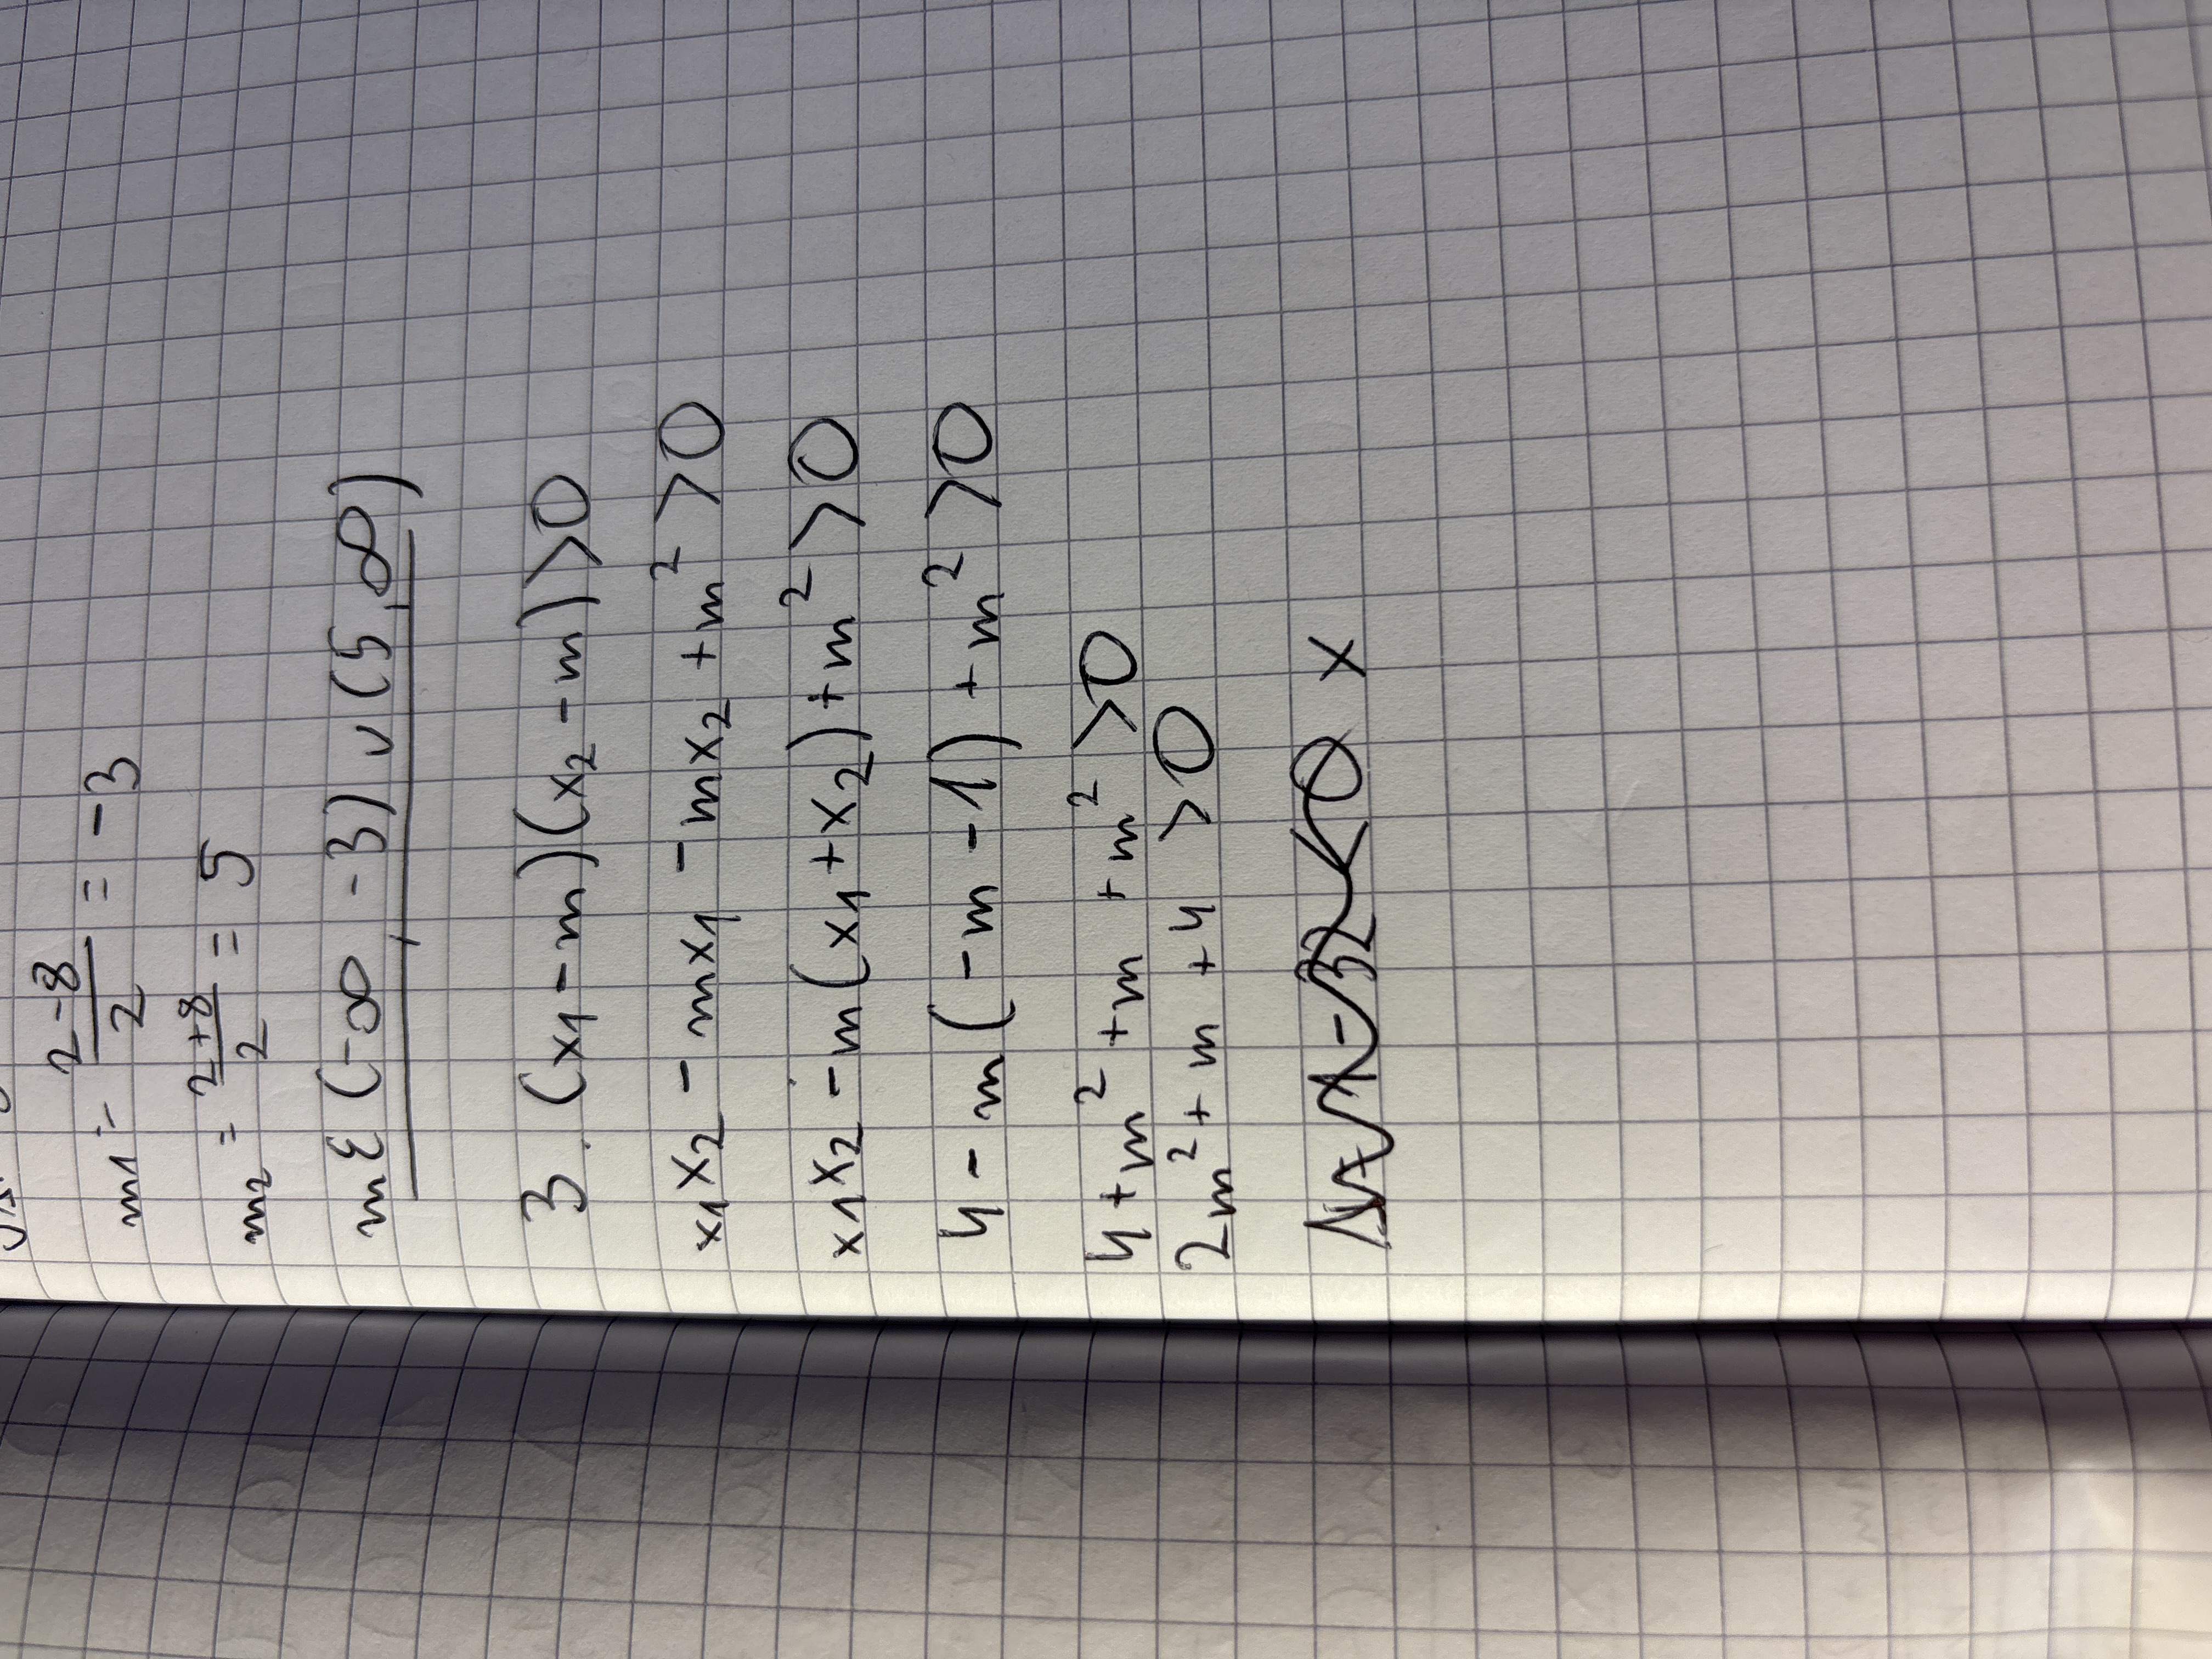 m1 = 2-8/2 = -3
m2 = 2+8/2 = 5
m ε (-∞, -3) v (5, ∞)
3. (x1 - m)(x2 - m) > 0
x1x2 - mx1 - mx2 + m² > 0
x1x2 - m(x1 + x2) + m² > 0
4 - m(-m - 1) + m² > 0
4 + m² + m + m² > 0
2m² + m + 4 > 0
x